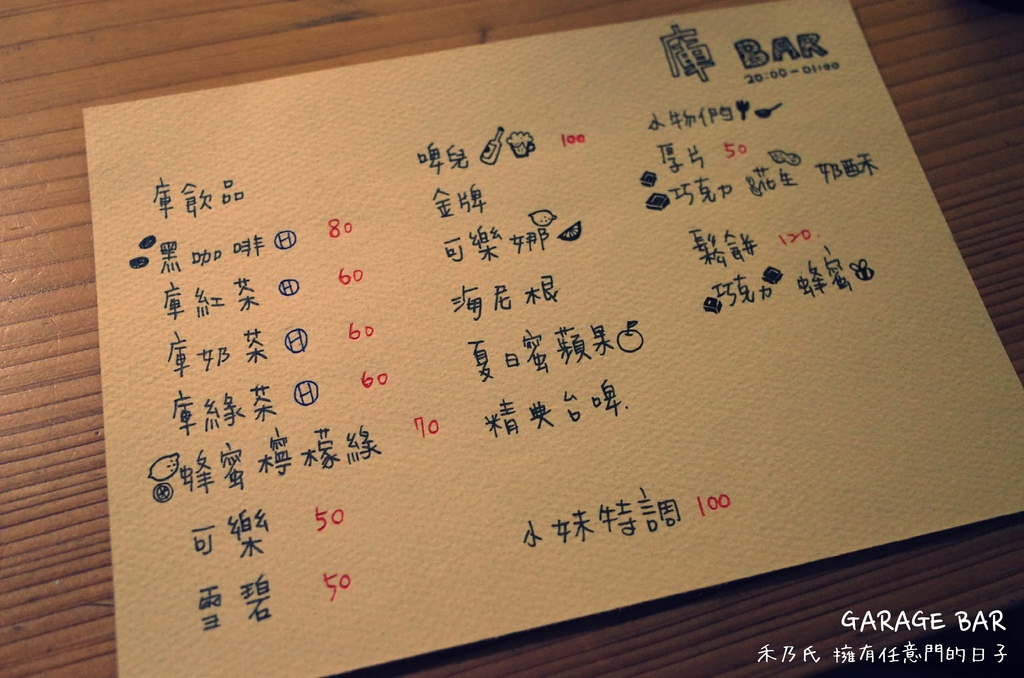 庫 BAR
20:00-01:00
庫飲品
黑咖啡 H 80
庫紅茶 H 60
庫奶茶 H 60
庫綠茶 H 60
蜂蜜檸檬綠 70
可樂 50
雪碧 50
啤兒 100
金牌
可樂娜
海尼根
夏日蜜蘋果
精典台啤.
小妹特調 100
小物們
厚片 50
巧克力 花生 奶酥
鬆餅 120.
巧克力 蜂蜜
GARAGE BAR
禾乃氏 擁有任意門的日子